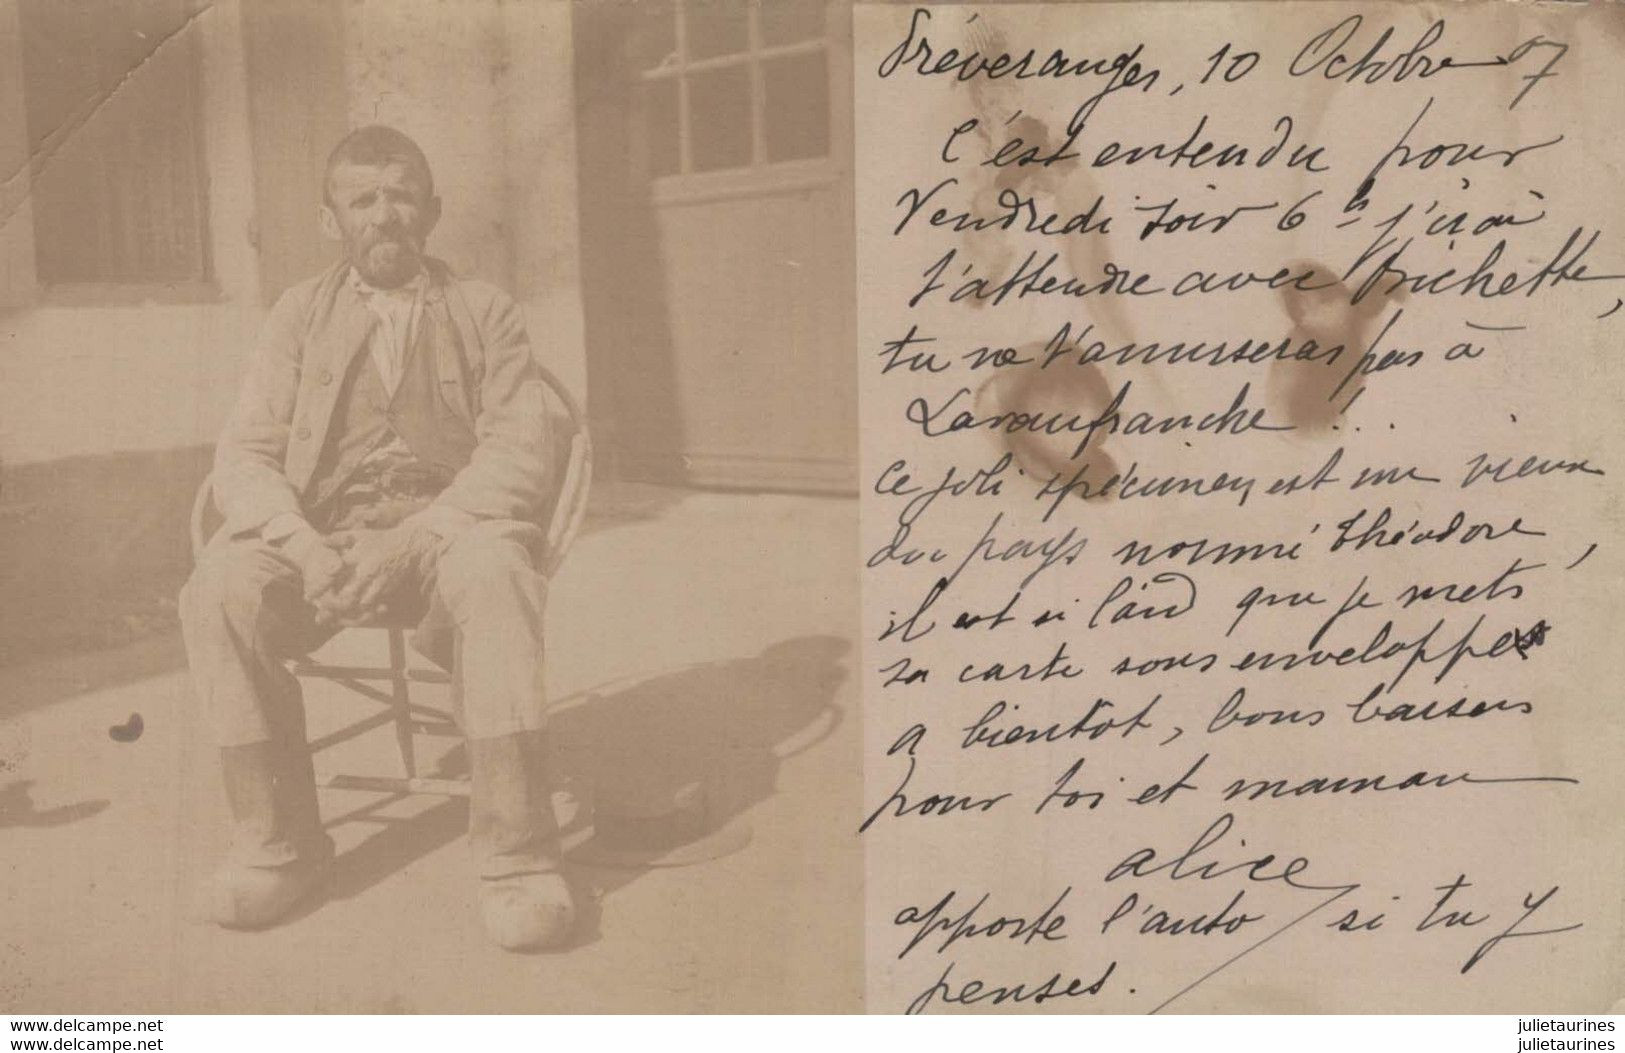 Préveranges, 10 Octobre 07
C'est entendu pour
Vendredi soir 6 h j'irai
t'attendre avec Brichette,
tu ne t'amuseras pas à
Lavaufranche !..
Ce joli spécimen, est un vieux
du pays nommé Théodore,
il est si laid que je mets
sa carte sous enveloppe
a bientôt, bons baisers
pour toi et maman
alice
apporte l'auto si tu y
penses.
www.delcampe.net
www.delcampe.net
julietaurines
julietaurines